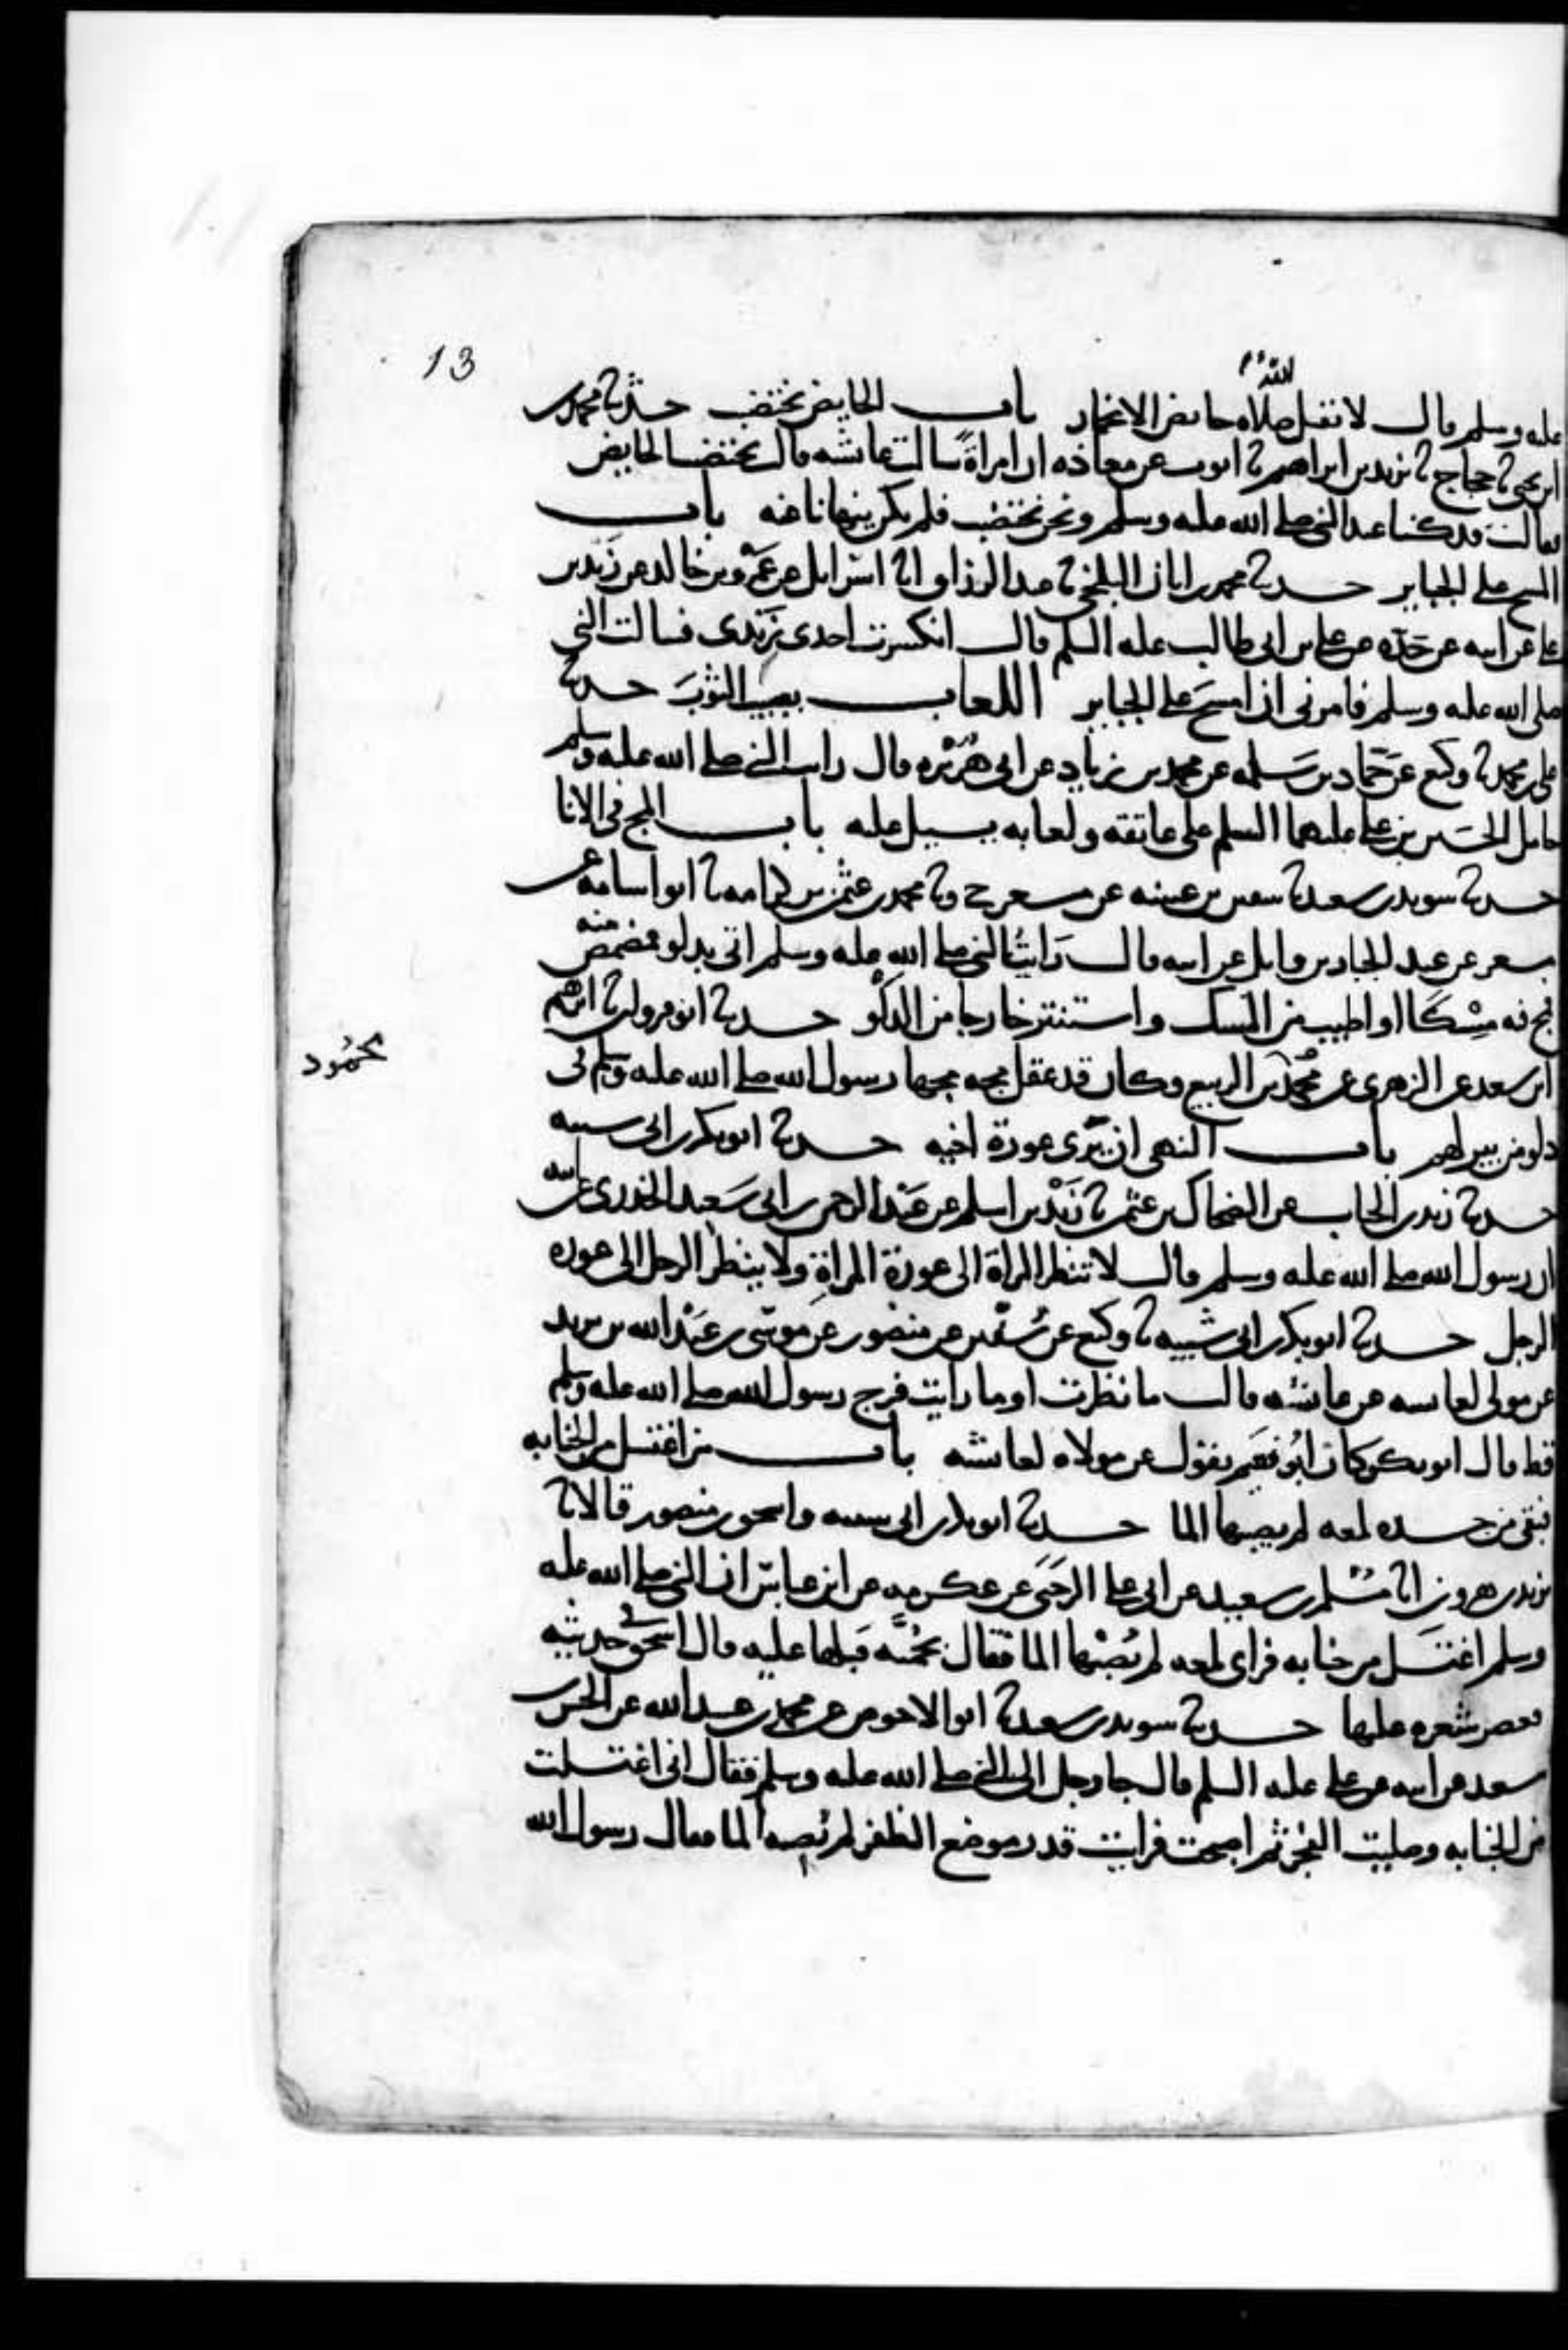 13
الله
عليه وسلم قال لا تقبل صلاة حائض الا بخمار باب الحايض تختضب حدثنا محمد بن
ابن يحيى ثنا حجاج ثنا يزيد بن ابراهيم ثنا ايوب عن معاذه ان امراة سالت عائشه قالت تختضب الحايض
فقالت قد كنا عند النبي صلى الله عليه وسلم ونحن نختضب فلم يكن ينهانا عنه باب
المسح على الجباير حدثنا محمد بن ابان البلخي ثنا عبد الرزاق انا اسرايل عن عمرو بن خالد عن زيد بن
علي عن ابيه عن جده عن علي بن ابي طالب عليه السلم قال انكسرت احدى زندي فسالت النبي
صلى الله عليه وسلم فامرني ان امسح على الجباير اللعاب يصيب الثوب حدثنا
علي بن محمد ثنا وكيع عن حماد بن سلمه عن محمد بن زياد عن ابي هريره قال رايت النبي صلى الله عليه وسلم
حامل الحسين بن علي عليهما السلم على عاتقه ولعابه يسيل عليه باب المج في الانا
حدثنا سويد بن سعيد ثنا سفين بن عيينه عن مسعر ح وثنا محمد بن عثمن بن كرامه ثنا ابو اسامه عن
مسعر عن عبد الجبار بن وايل عن ابيه قال رايت النبي صلى الله عليه وسلم اتي بدلو فمضمض منه
فمج فيه مسكا او اطيب من المسك واستنثر خارجا من الدلو حدثنا ابو مروان ثنا ابرهيم
ابن سعد عن الزهري عن محمد بن الربيع وكان قد عقل مجه مجها رسول الله صلى الله عليه وسلم في
محمود
دلو من بير لهم باب النهي ان يرى عورة اخيه حدثنا ابو بكر بن ابي شيبه
حدثنا زيد بن الحباب عن الضحاك بن عثمن ثنا زيد بن اسلم عن عبد الرحمن بن ابي سعيد الخدري عن ابيه
ان رسول الله صلى الله عليه وسلم قال لا تنظر المراة الى عورة المراة ولا ينظر الرجل الى عوره
الرجل حدثنا ابو بكر بن ابي شيبه ثنا وكيع عن سفين عن منصور عن موسى بن عبد الله بن يزيد
عن مولى لعايشه عن عائشه قالت ما نظرت او ما رايت فرج رسول الله صلى الله عليه وسلم
قط قال ابو بكر كان ابو نعيم يقول عن مولاه لعائشه باب من اغتسل من الجنابه
فبقي من جسده لمعه لم يصبها الما حدثنا ابو بكر بن ابي شيبه واسحق بن منصور قالا ثنا
يزيد بن هرون انا مسلم بن سعيد عن ابي علي الرحبي عن عكرمه عن ابن عباس ان النبي صلى الله عليه
وسلم اغتسل من جنابه فراى لمعه لم يصبها الما فقال بجمته فبلها عليه قال اسحق في حديثه
فعصر شعره عليها حدثنا سويد بن سعيد ثنا ابو الاحوص عن محمد بن عبيد الله عن الحسن بن
سعد عن ابيه عن علي عليه السلم قال جا رجل الى النبي صلى الله عليه وسلم فقال اني اغتسلت
من الجنابه وصليت الفجر ثم اصبحت فرايت قدر موضع الظفر لم يصبه الما فقال رسول الله